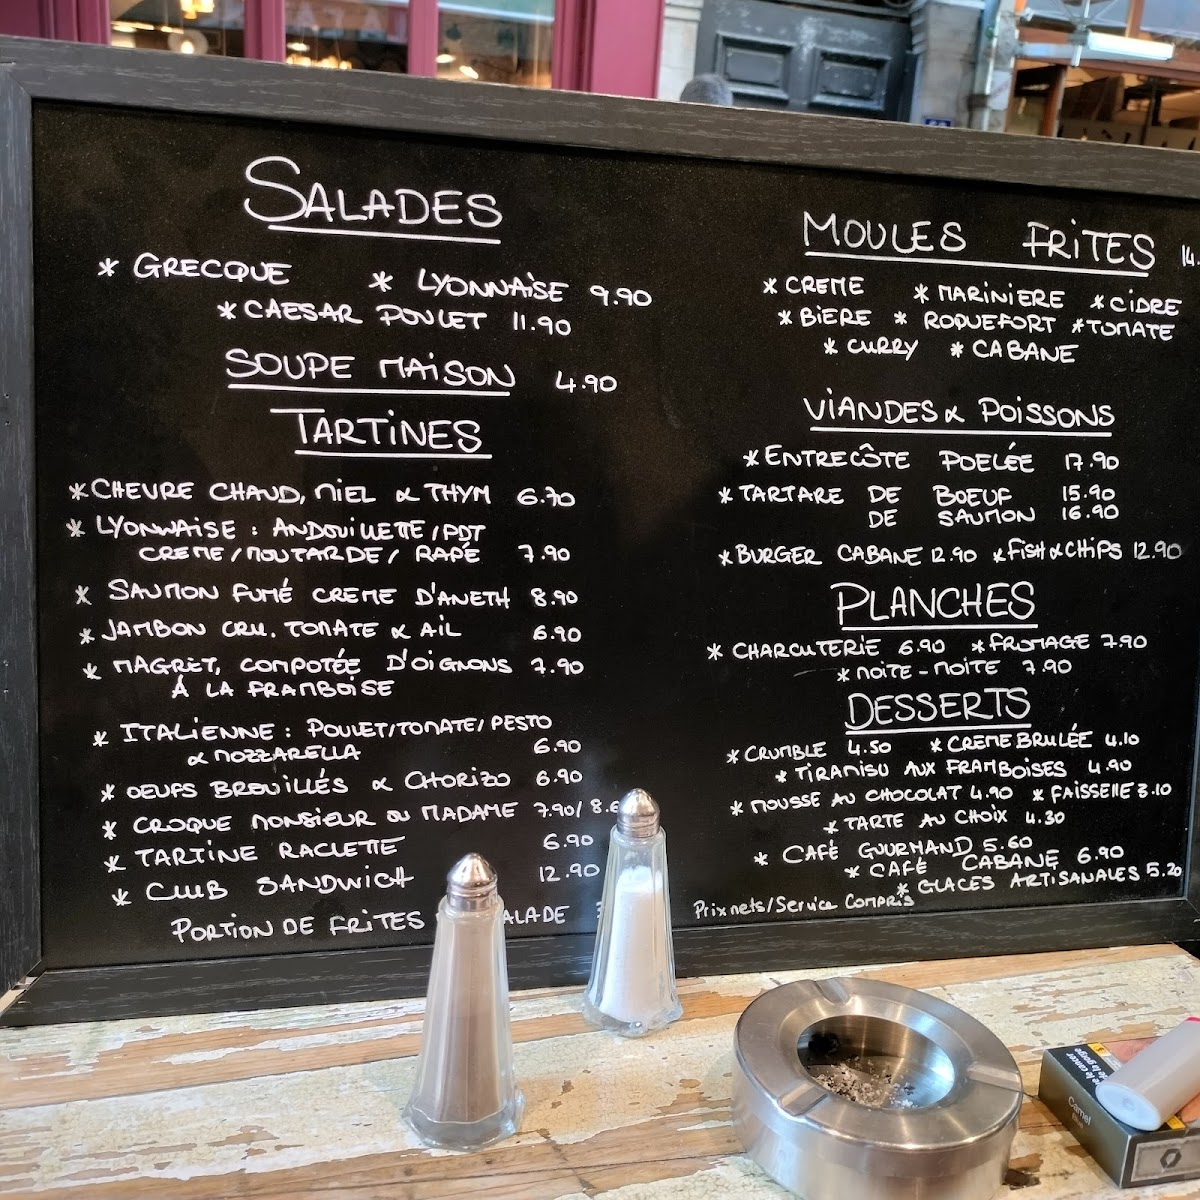 SALADES
* GRECQUE * LYONNAISE 9.90
* CAESAR POULET 11.90
SOUPE MAISON 4.90
TARTINES
* CHEVRE CHAUD, MIEL & THYM 6.70
* LYONNAISE : ANDOUILLETTE / PDT
CREME / MOUTARDE / RAPÉ 7.90
* SAUMON FUMÉ CREME D'ANETH 8.90
* JAMBON CRU, TOMATE & AIL 6.90
* MAGRET, COMPOTÉE D'OIGNONS 7.90
À LA FRAMBOISE
* ITALIENNE : POULET/TOMATE/PESTO
& MOZZARELLA 6.90
* OEUFS BROUILLÉS & CHORIZO 6.90
* CROQUE MONSIEUR OU MADAME 7.90/8.6
* TARTINE RACLETTE 6.90
* CLUB SANDWICH 12.90
PORTION DE FRITES ALADE
MOULES FRITES 14.
* CREME * MARINIERE * CIDRE
* BIERE * ROQUEFORT * TOMATE
* CURRY * CABANE
VIANDES & POISSONS
* ENTRECÔTE POELÉE 17.90
* TARTARE DE BOEUF 15.90
DE SAUMON 16.90
* BURGER CABANE 12.90 * FISH & CHIPS 12.90
PLANCHES
* CHARCUTERIE 6.90 * FROMAGE 7.90
* MOITE - MOITE 7.90
DESSERTS
* CRUMBLE 4.50 * CREME BRULÉE 4.10
* TIRAMISU AUX FRAMBOISES 4.90
* MOUSSE AU CHOCOLAT 4.90 * FAISSELLE 3.10
* TARTE AU CHOIX 4.30
* CAFÉ GOURMAND 5.60
* CAFÉ CABANE 6.90
* GLACES ARTISANALES 5.20
Prix nets/Service Compris
le cancer
de la gorge
Camel